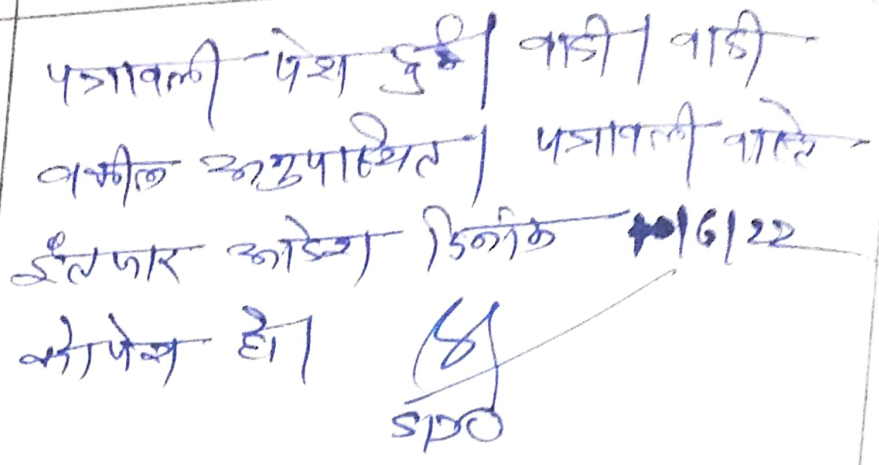 पत्रावली पेश हुई। वादी / वादी
वकील अनुपस्थित। पत्रावली वास्ते
इंतजार आदेश दिनांक /6/22
को पेश हो।
SDO